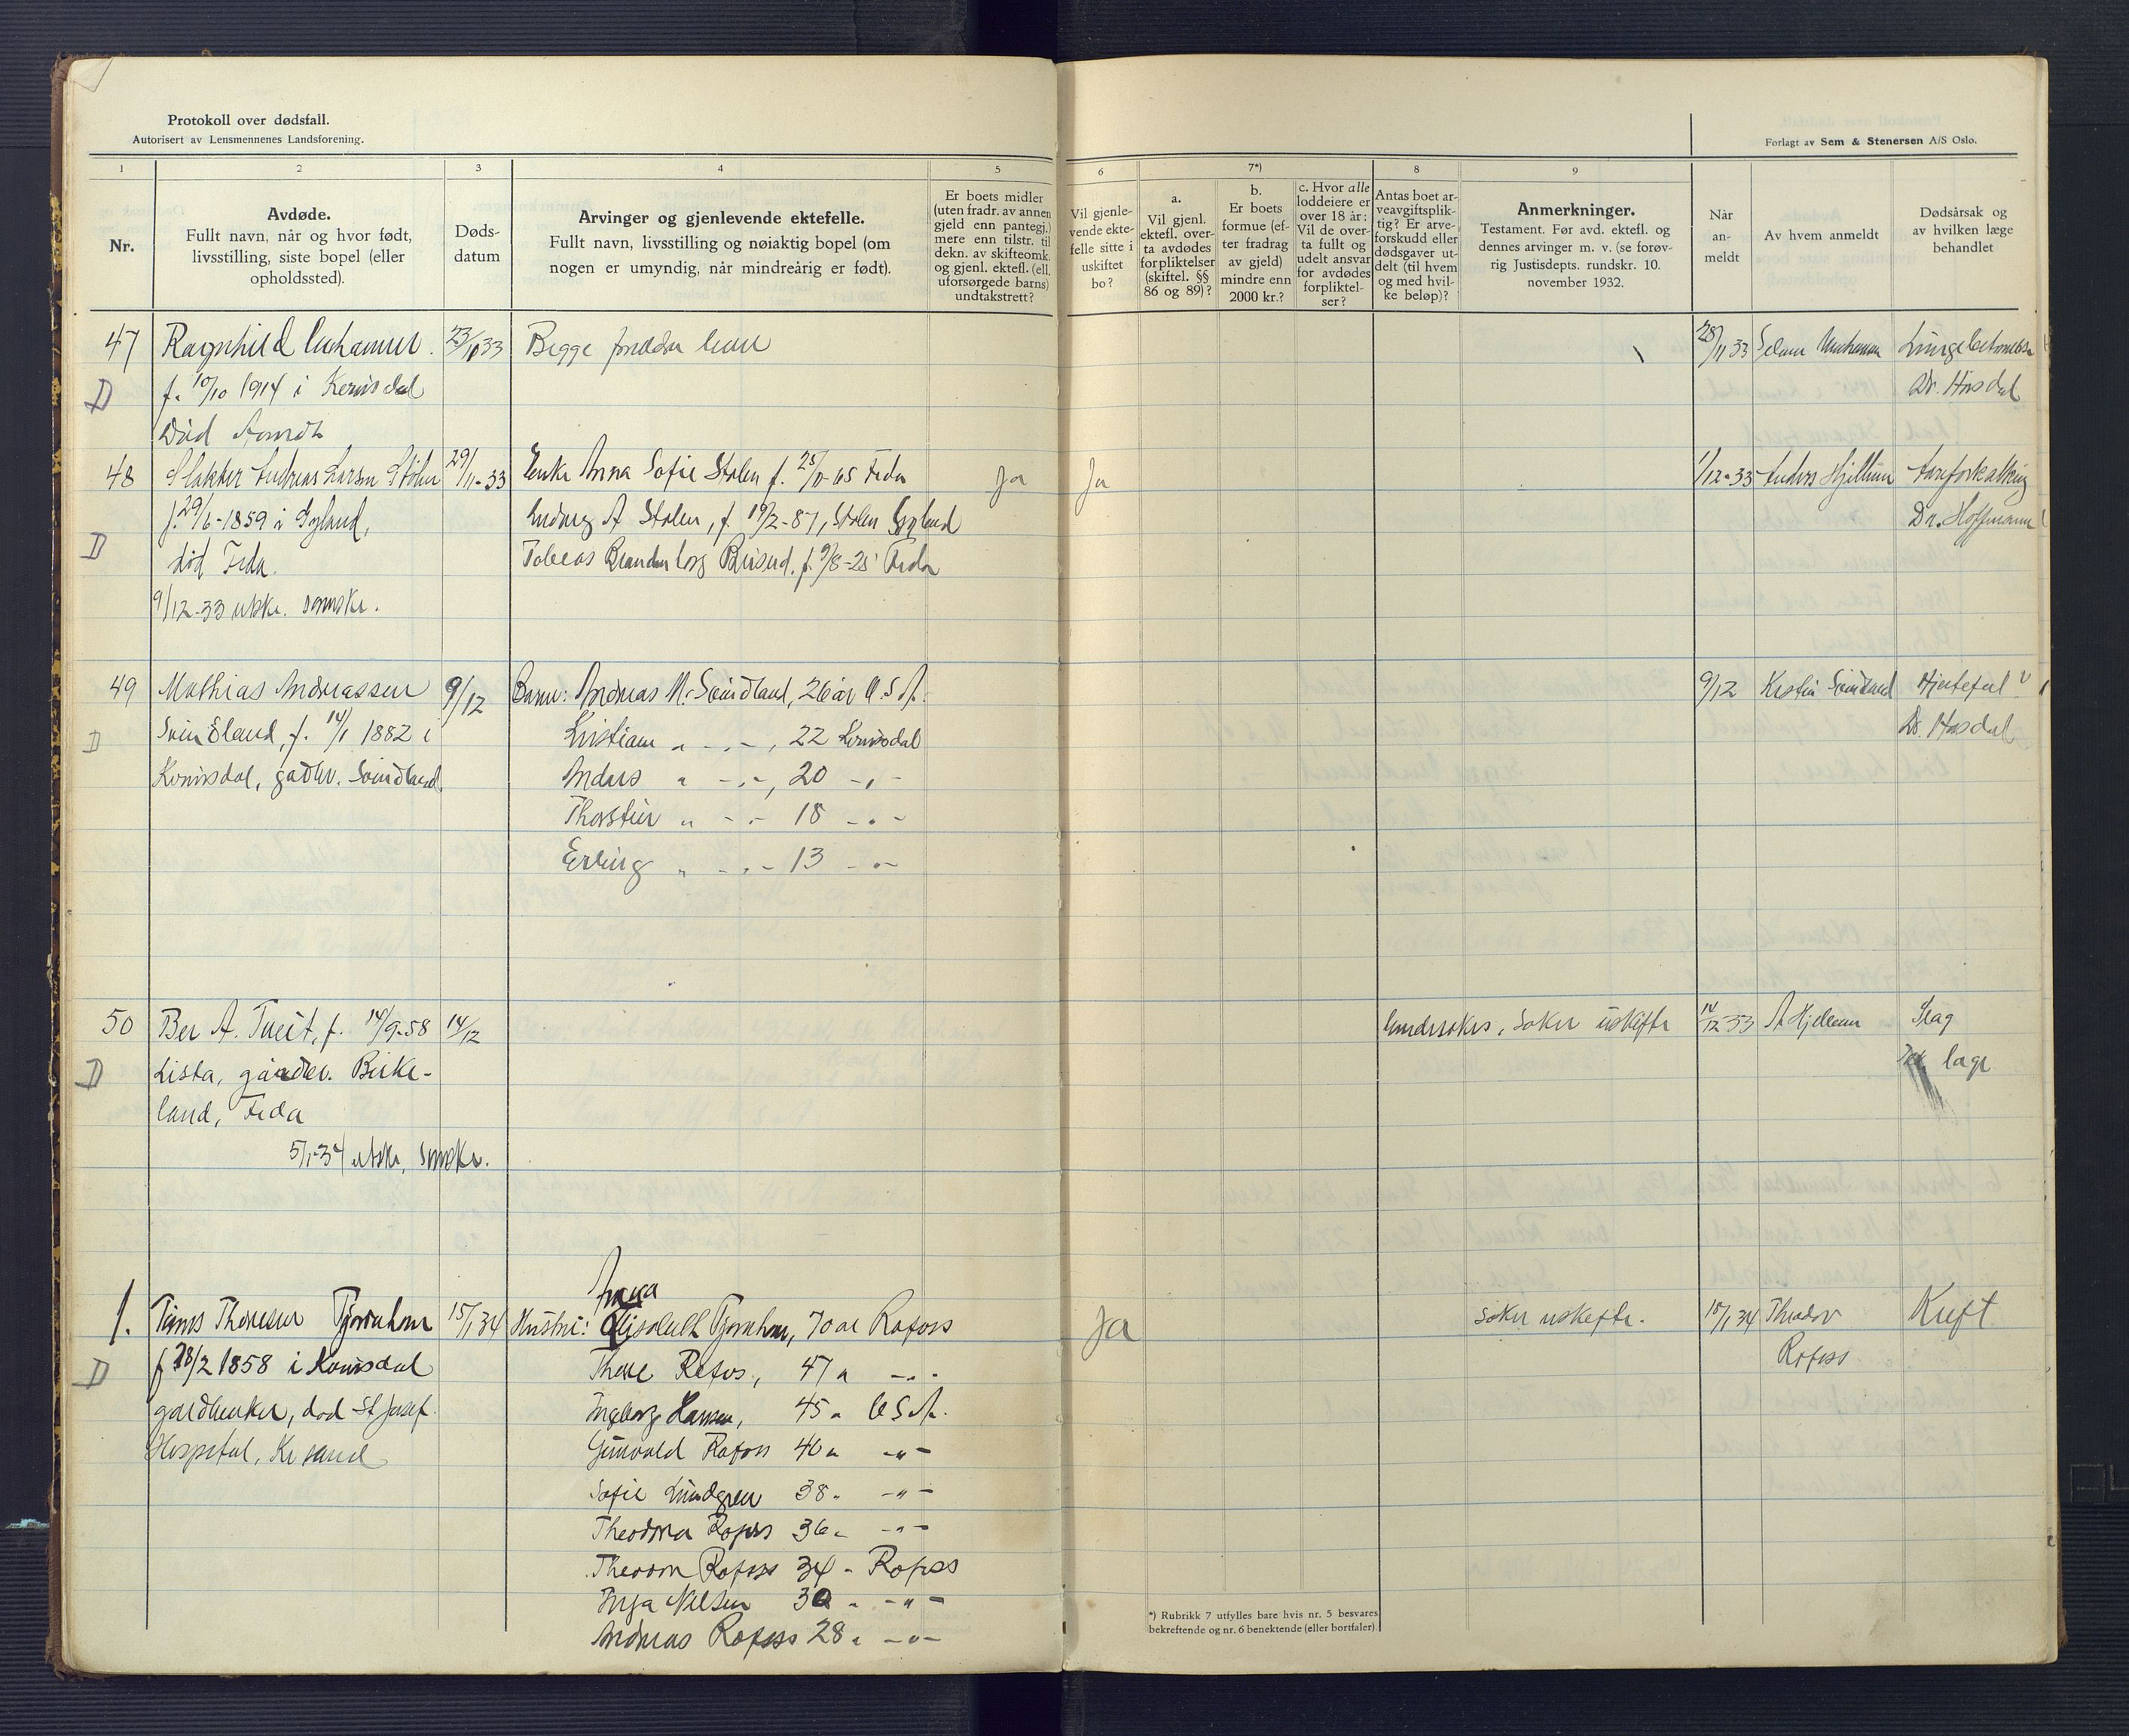 Protokoll over dødsfall.
Autorisert av Lensmennenes Landsforening.
Forlagt av Sem & Stenersen A/S Oslo.
1
2
3
4
5
6
7*)
8
9
Nr.
Avdøde.
Fullt navn, når og hvor født,
livsstilling, siste bopel (eller
opholdssted).
Døds-
datum
Arvinger og gjenlevende ektefelle.
Fullt navn, livsstilling og nøiaktig bopel (om
nogen er umyndig, når mindreårig er født).
Er boets midler
(uten fradr. av annen
gjeld enn pantegj.)
mere enn tilstr. til
dekn. av skifteomk.
og gjenl. ektefl. (ell.
uforsørgede barns)
undtakstrett?
Vil gjenle-
vende ekte-
felle sitte i
uskiftet
bo?
a.
Vil gjenl.
ektefl. over-
ta avdødes
forpliktelser
(skiftel. §§
86 og 89)?
b.
Er boets
formue (ef-
ter fradrag
av gjeld)
mindre enn
2000 kr.?
c. Hvor alle
loddeiere er
over 18 år:
Vil de over-
ta fullt og
udelt ansvar
for avdødes
forpliktel-
ser?
Antas boet ar-
veavgiftsplik-
tig? Er arve-
forskudd eller
dødsgaver ut-
delt (til hvem
og med hvil-
ke beløp)?
Anmerkninger.
Testament. Før avd. ektefl. og
dennes arvinger m. v. (se forøv-
rig Justisdepts. rundskr. 10.
november 1932.
Når
an-
meldt
Av hvem anmeldt
Dødsårsak og
av hvilken læge
behandlet
47 Ragnhild 33 Begge 28/11 33
D f. 10/10 1914 i Dr. Hosdal
Død
48 Andreas Larsen Stölen 29/11-33 Enke Anna Sofie Stolen f. Feda Ja Ja 1/12-33 Anders Hjellum
f. 29/6-1859 i Gyland, A Stolen, f. 19/2-87, Stolen Gyland Dr. Hoffmann
D død Feda. Tobias f. 9/8-25 Feda
9/12-33 utskr.
49 Mathias Andreassen 9/12 Barn: Andreas M. Svindland, 26 år U.S.A. 9/12 Svindland Hjertefeil?
D Svindland, f. 14/1 1882 i Kristian " - " -, 22 Kvinsdal Dr. Hosdal
Kvinsdal, gardbr. Svindland. Anders " - " -, 20 - " -
" - " - 18 - " -
Erling " - " - 13 - " -
50 Ber A. Tveit, f. 14/9-58 14/12 søker uskifte 14/12-33 A Hjellum Slag
D Lista, gårdbr. Birke- læge
land, Feda
5/1-34 utskr.
Anna
1. Tønnes Thoresen Tjørnhom 15/1 34 Hustru: Elisabeth Tjørnhom, 70 år Rafoss Ja søker uskifte. 15/1 34 Theodor Kreft
D f 28/2 1858 i Kvinsdal Thore Rafos, 47 " - " - Rafoss
gardbruker, død St. Josef. Ingeborg Hansen, 45 " U S A.
Hospital, Kr sand Gunvald Rafoss 40 " - " -
Sofie Lundgren 38 " - " -
Theodora Rafoss 36 " - " -
Theodor Rafoss 34 " Rafoss
Inga Nilsen 30 " - " -
Andreas Rafoss 28 " - " -
*) Rubrikk 7 utfylles bare hvis nr. 5 besvares
bekreftende og nr. 6 benektende (eller bortfaler).